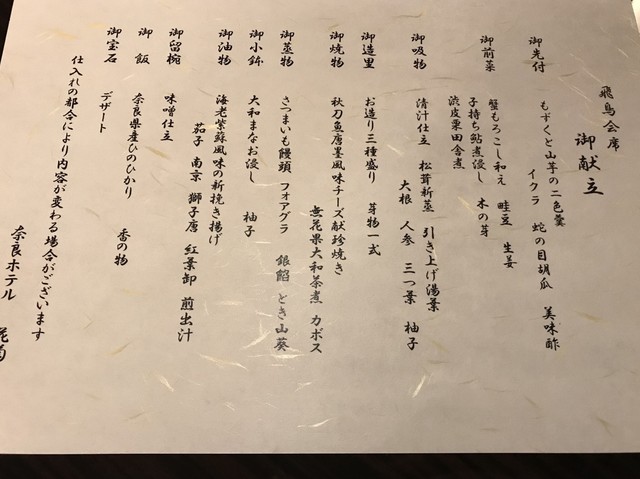 飛鳥会席
御献立
御先付 もずくと山芋の二色羹
イクラ 蛇の目胡瓜 美味酢
御前菜 蟹もろこし和え 畦豆 生姜
子持ち鮎煮浸し 木の芽
渋皮栗田舎煮
御吸物 清汁仕立 松茸新蒸 引き上げ湯葉
大根 人参 三つ葉 柚子
御造里 お造り三種盛り 芽物一式
御焼物 秋刀魚唐墨風味チーズ献珍焼き
無花果大和茶煮 カボス
御蒸物 さつまいも饅頭 フォアグラ 銀餡 とき山葵
御小鉢 大和まなお浸し 柚子
御油物 海老紫蘇風味の新挽き揚げ
茄子 南京 獅子唐 紅葉卸 煎出汁
御留椀 味噌仕立
御飯 奈良県産ひのひかり 香の物
御宝石 デザート
仕入れの都合により内容が変わる場合がございます
奈良ホテル 花菊